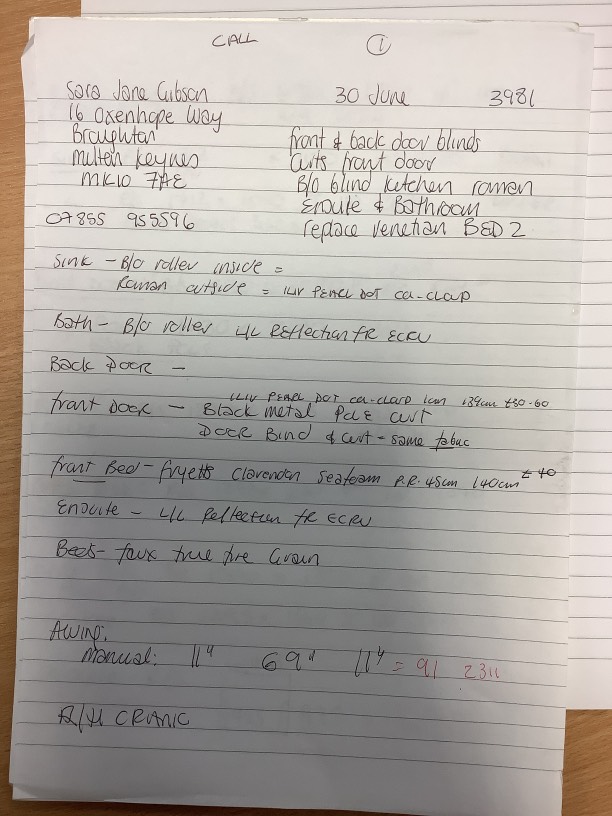 CALL 1
Sara Jane Gibson 30 June 3981
16 Oxenhope Way
Broughton front & back door blinds
Milton Keynes Curts front door
MK10 7AE B/O blind kitchen roman
Ensuite & Bathroom
07855 955596 replace venetian BED 2
Sink - B/O roller inside =
Roman outside = ILIV PENCIL DOT
Bath - B/O roller L/L REFLECTION FR ECRU
BACK DOOR -
ILIV PENCIL DOT 1cm 139cm £30-60
front DOOR - Black metal Pole curt
DOOR Bind & curt - same fabric
front Bed - fryetts Clarendon Seafoam P.R. 45cm 140cm £40
Ensuite - L/L Reflection FR ECRU
Bed - faux true fine Grain
Awing:
Manual: 11" 69" 11" = 91 2311
R/H CRANK